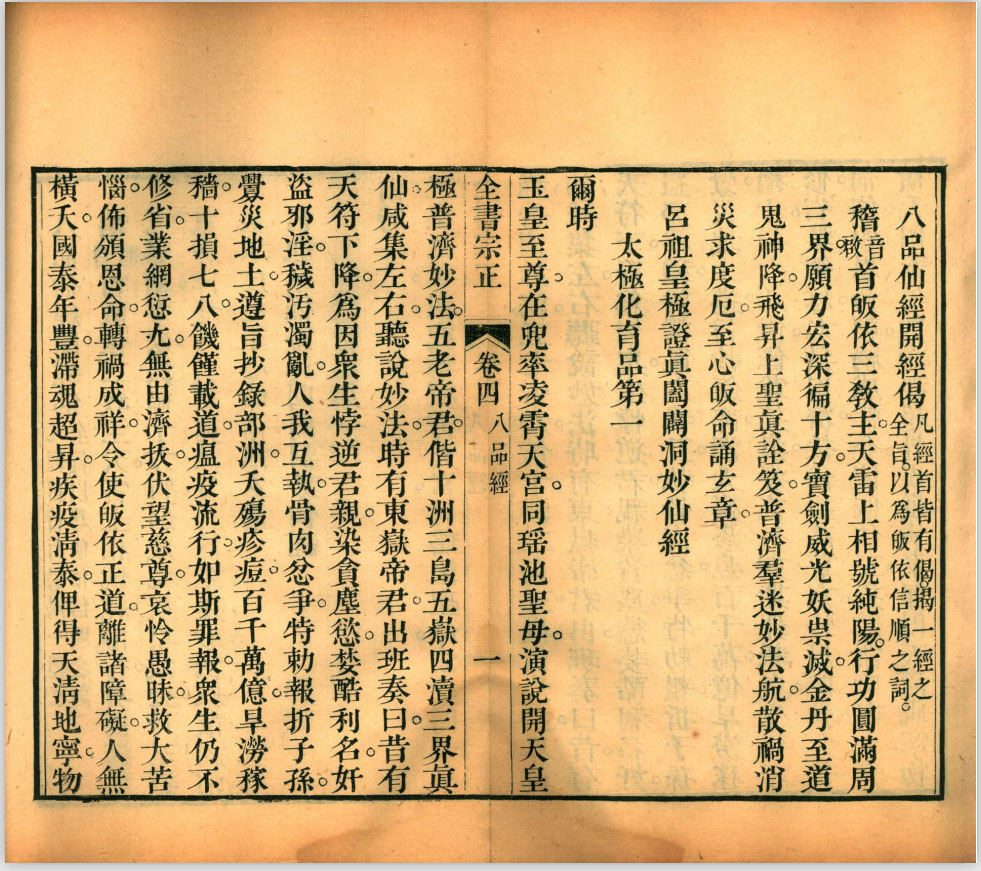 八品仙經開經偈凡經首皆有偈。揭一經之全旨。以爲皈依信順之詞。
稽音啟首皈依三敎主。天雷上相號純陽。行功圓滿周
三界。願力宏深徧十方。寶劍威光妖祟滅。金丹至道
鬼神降。飛昇上聖眞詮笈。普濟羣迷妙法航。散禍消
災求度厄。至心皈命誦玄章。
呂祖皇極證眞闔闢洞妙仙經
太極化育品第一
爾時
玉皇至尊。在兜率凌霄天宮。同瑤池聖母。演說開天皇
全書宗正 卷四 八品經 一
極普濟妙法。五老帝君。偕十洲三島五嶽四瀆三界眞
仙。咸集左右。聽說妙法。時有東嶽帝君。出班奏曰。昔有
天符下降。爲因衆生悖逆君親。染貪塵慾。婪酷利名。奸
盜邪淫。穢汚濁亂。人我互執。骨肉忿爭。特勅報折子孫。
釁災地土。遵旨抄錄部洲。夭殤疹痘。百千萬億。旱澇稼
穡。十損七八。饑饉載道。瘟疫流行。如斯罪報。衆生仍不
修省。業網愆尤。無由濟拔。伏望慈尊。哀怜愚昧。救大苦
惱。佈頒恩命。轉禍成祥。令使皈依正道。離諸障礙。人無
橫夭。國泰年豐。滯魂超昇。疾疫淸泰。俾得天淸地寧。物